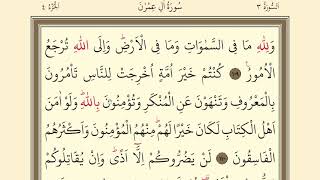 السورة ٣ سورة آل عمرٰن الجزء ٤
وَلِلّٰهِ مَا فِي السَّمٰوَاتِ وَمَا فِي الْاَرْضِۜ وَاِلَى اللّٰهِ تُرْجَعُ
الْاُمُورُ ﴿١٠٩﴾ كُنْتُمْ خَيْرَ اُمَّةٍ اُخْرِجَتْ لِلنَّاسِ تَأْمُرُونَ
بِالْمَعْرُوفِ وَتَنْهَوْنَ عَنِ الْمُنْكَرِ وَتُؤْمِنُونَ بِاللّٰهِۜ وَلَوْ اٰمَنَ
اَهْلُ الْكِتَابِ لَكَانَ خَيْرًا لَهُمْۜ مِنْهُمُ الْمُؤْمِنُونَ وَاَكْثَرُهُمُ
الْفَاسِقُونَ ﴿١١٠﴾ لَنْ يَضُرُّوكُمْ اِلَّٓا اَذًىۜ وَاِنْ يُقَاتِلُوكُمْ